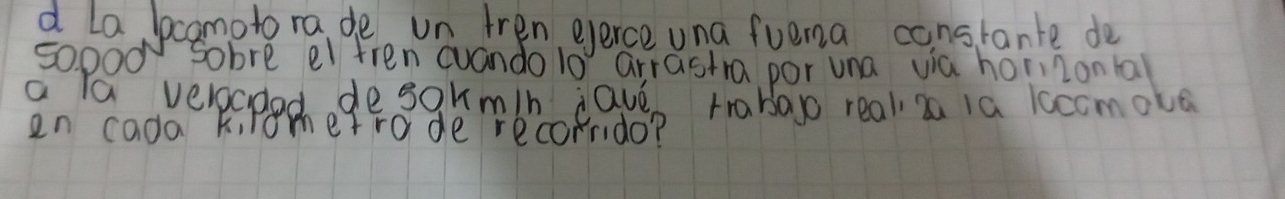 d La locomotora de un tren ejerce una fuerza constante de
50000N sobre el tren cuando lo arrastra por una vía horizontal
a la velocidad de 50km/h ¿Qué trabajo realiza la
en cada kilómetro de recorrido?